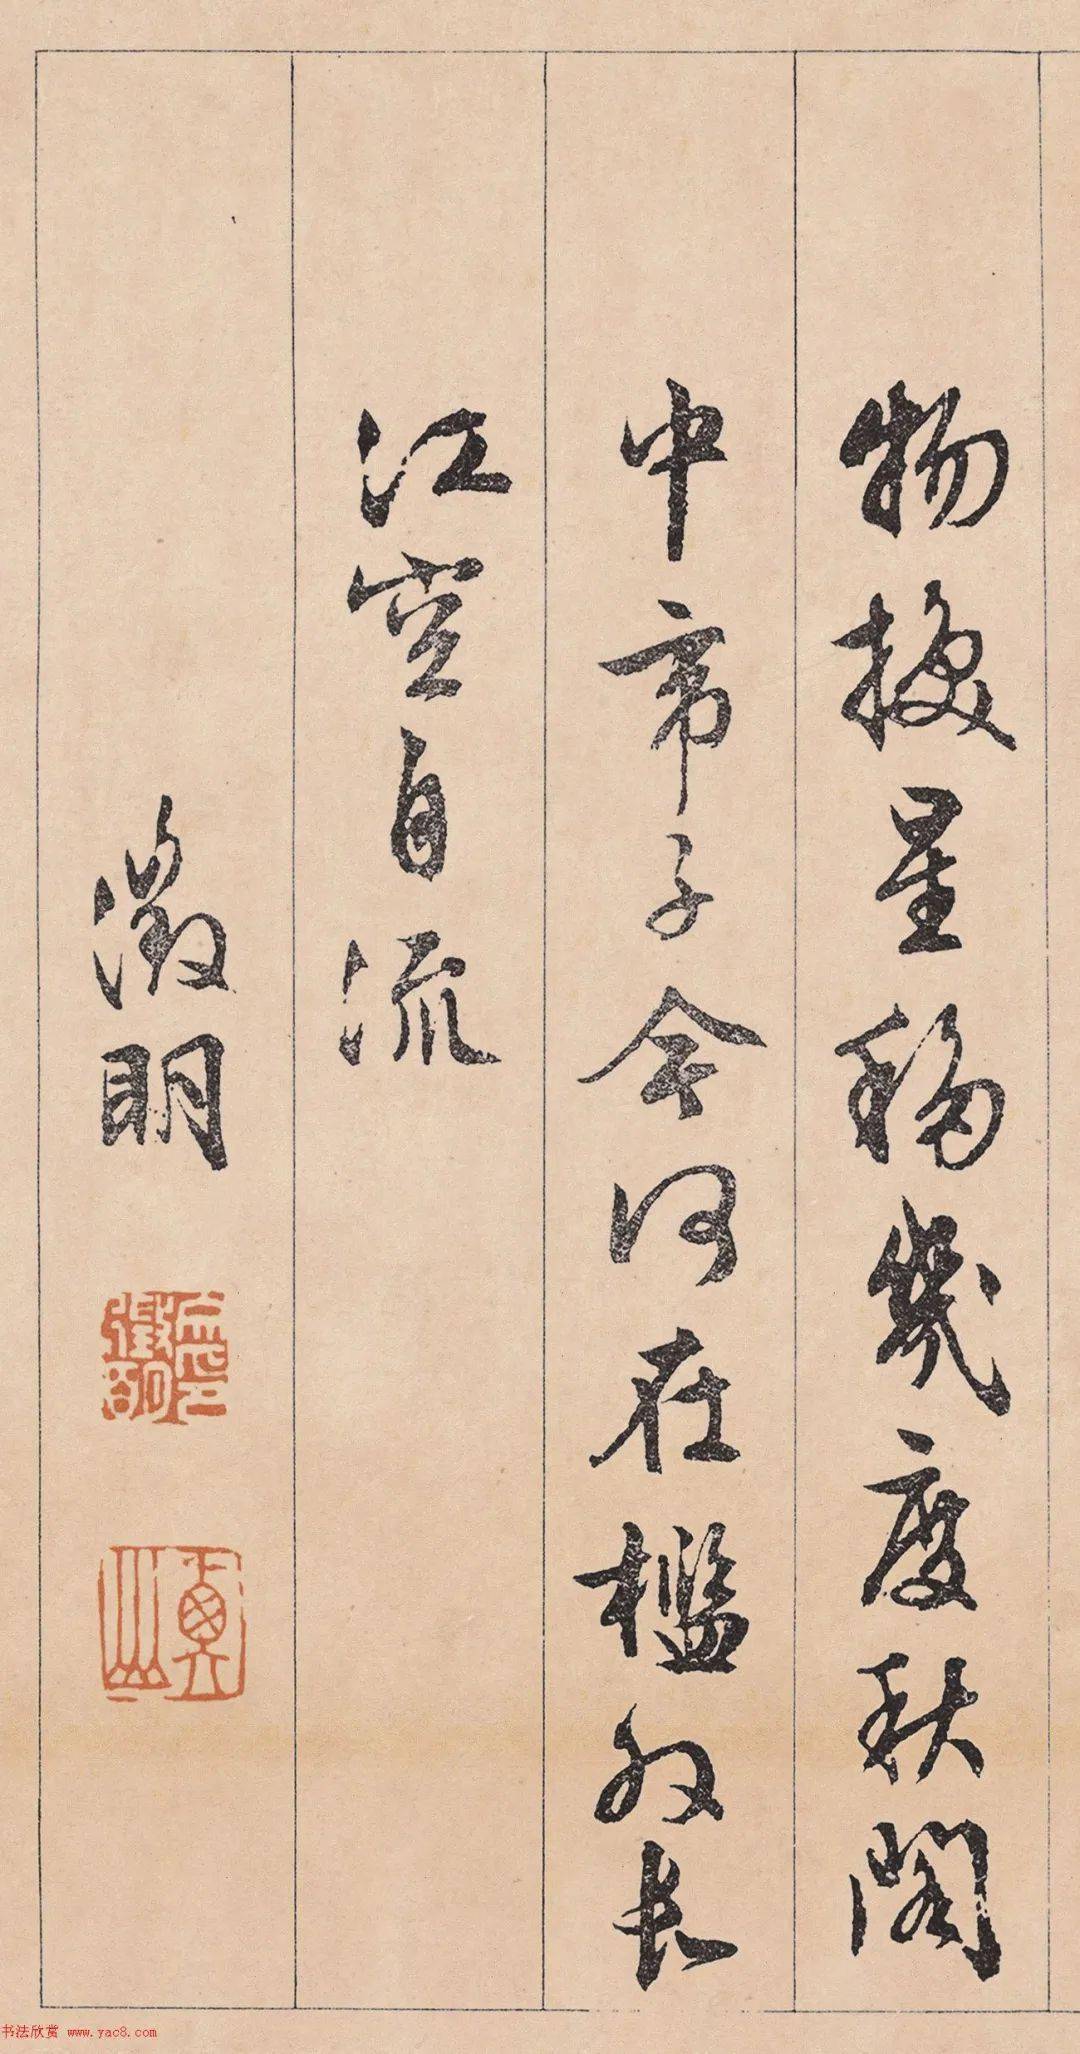 物换星移幾度秋閣
中帝子今何在檻外長
江空自流
徵明
书法欣赏 www.yac8.com